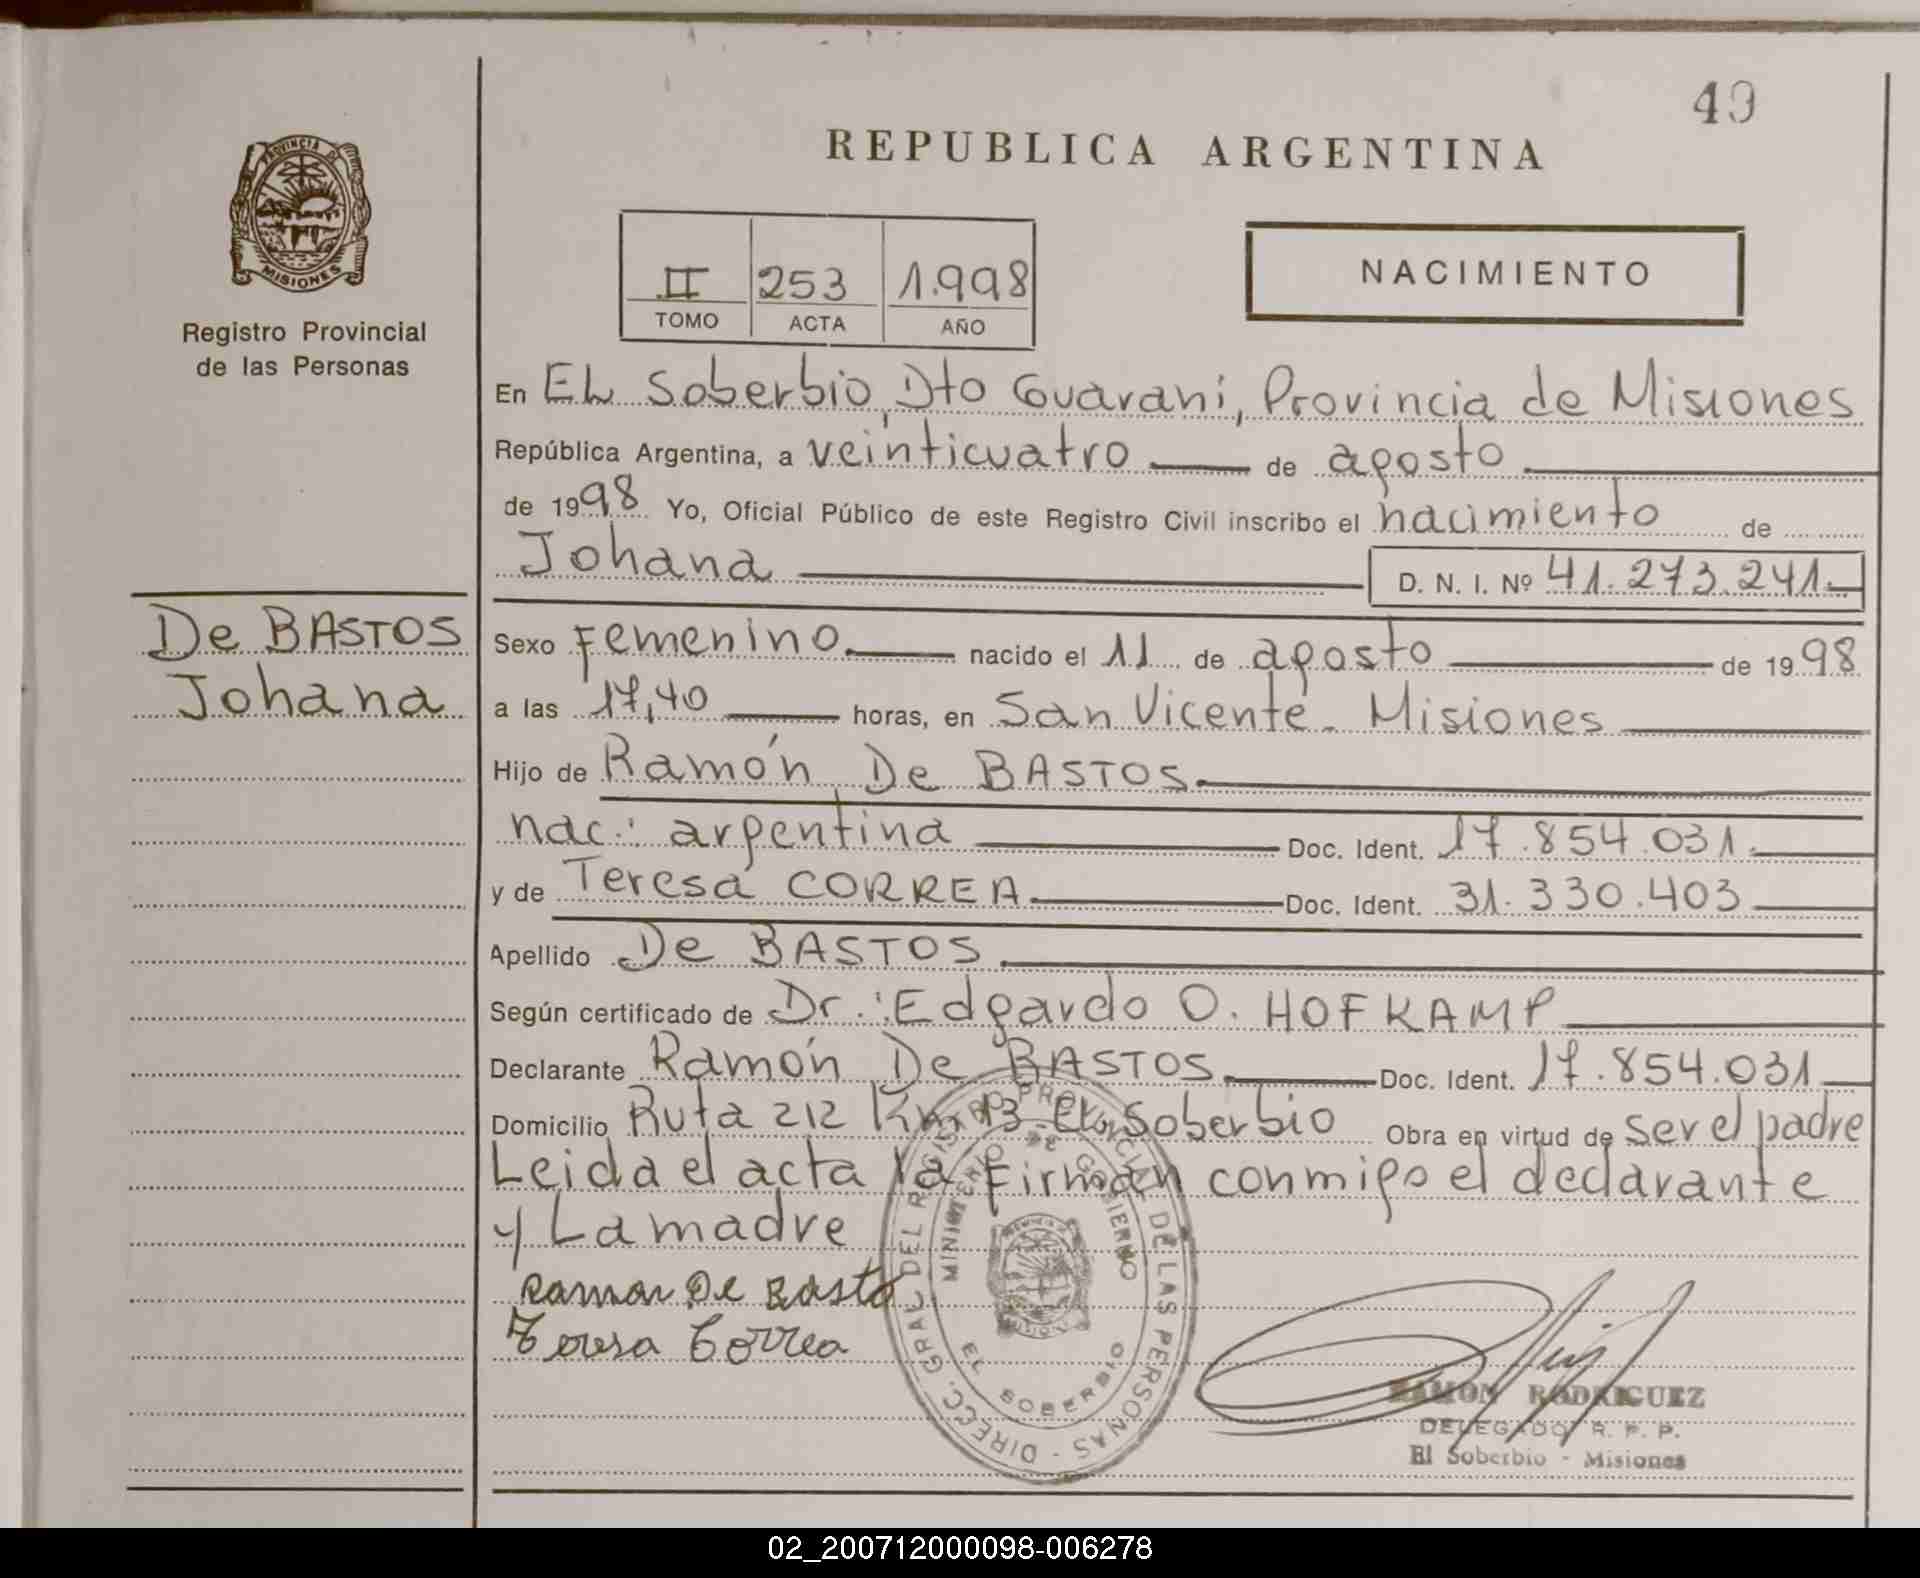 49
REPUBLICA ARGENTINA
PROVINCIA DE
MISIONES
Registro Provincial
de las Personas
II 253 1.998
TOMO ACTA AÑO
NACIMIENTO
En EL Soberbio, Dto Guaraní, Provincia de Misiones
República Argentina, a veinticuatro de agosto
de 1998 Yo, Oficial Público de este Registro Civil inscribo el nacimiento de
Johana D. N. I. Nº 41.273.241.
De BASTOS
Johana
Sexo Femenino. nacido el 11 de agosto de 1998
a las 17,40 horas, en San Vicente - Misiones
Hijo de Ramón De BASTOS.
nac.: argentina Doc. Ident. 17.854.031.
y de Teresa CORREA. Doc. Ident. 31.330.403
Apellido De BASTOS.
Según certificado de Dr.: Edgardo O. HOFKAMP
Declarante Ramón De BASTOS. Doc. Ident. 17.854.031
Domicilio Ruta 212 Km. 13 - EL Soberbio Obra en virtud de ser el padre
Leida el acta la Firman conmigo el declarante
y La madre
Ramon De Basto
Teresa Correa
DIRECC. GRAL. DEL REGISTRO PROVINCIAL DE LAS PERSONAS -
MINISTERIO DE GOBIERNO
EL SOBERBIO
RAMON RODRIGUEZ
DELEGADO R. P. P.
El Soberbio - Misiones
02_200712000098-006278